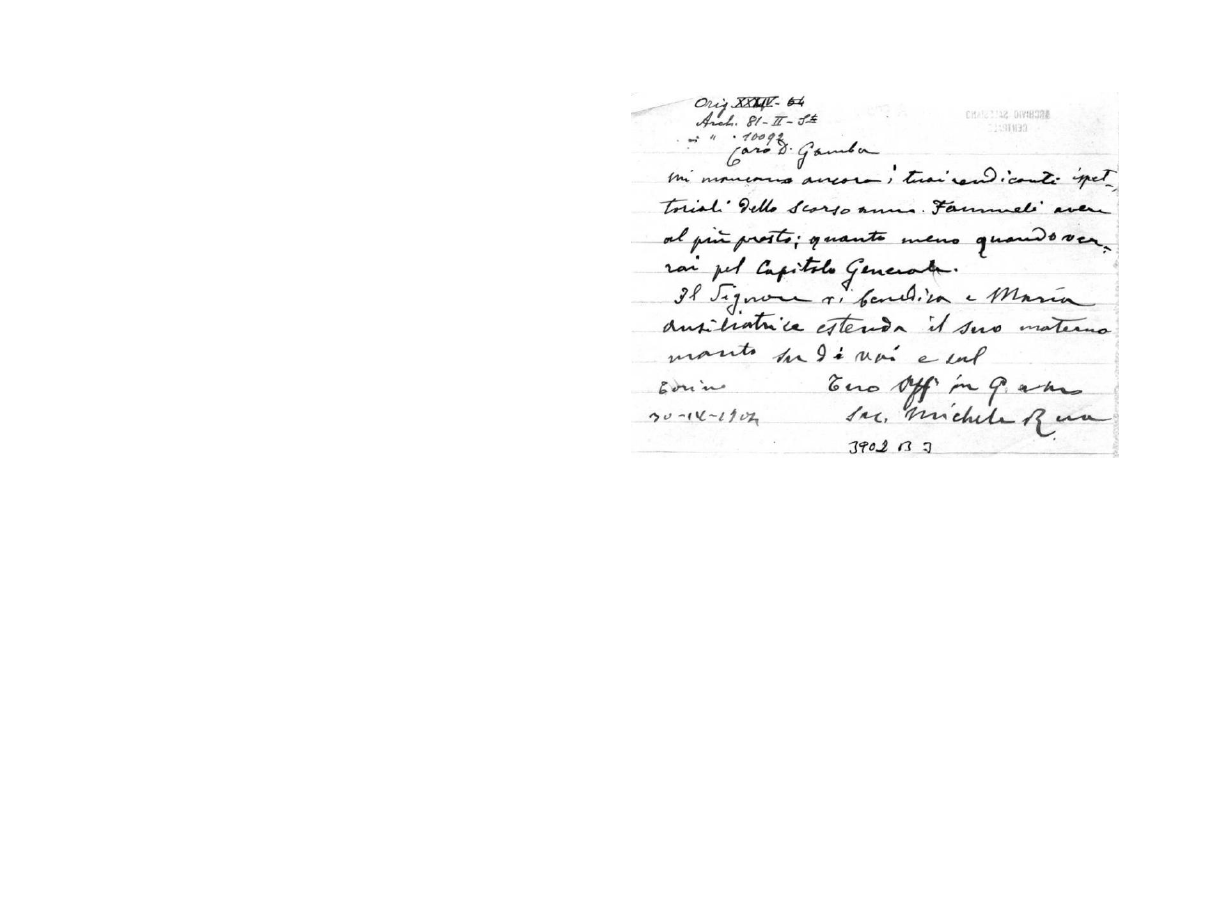 Orig. XXXIV - 64
Arch. 81 - II - Sta
" " 10092
Caro D. Gamba
Mi mancano ancora i tuoi rendiconti ispet-
toriali dello scorso anno. Fammeli avere
al più presto; quanto meno quando ver-
rai pel Capitolo Generale.
Il Signore vi benedica e Maria
Ausiliatrice estenda il suo materno
manto su di voi e sul
Torino Tuo aff in G
30-IX-190 Sac. Michele Rua
3902 B 3